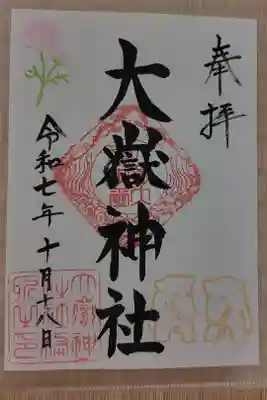 奉拝
大嶽神社
令和七年十月十八日